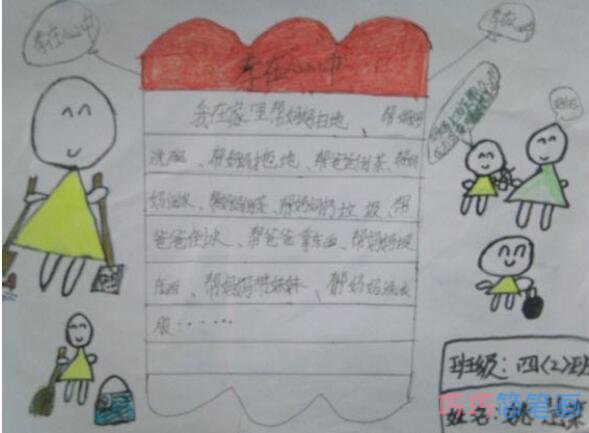 孝在心中
孝在心中
孝在心中
我在家里帮妈妈扫地、帮妈妈
洗碗、帮妈妈拖地、帮爸爸倒茶、帮妈
妈倒水、帮妈妈倒茶、帮妈妈扔垃圾、帮
爸爸倒水、帮爸爸拿东西、帮妈妈提
东西、帮妈妈带妹妹、帮妈妈洗衣
服……
班级:四〈2〉班
姓名:姚
巧巧简笔画